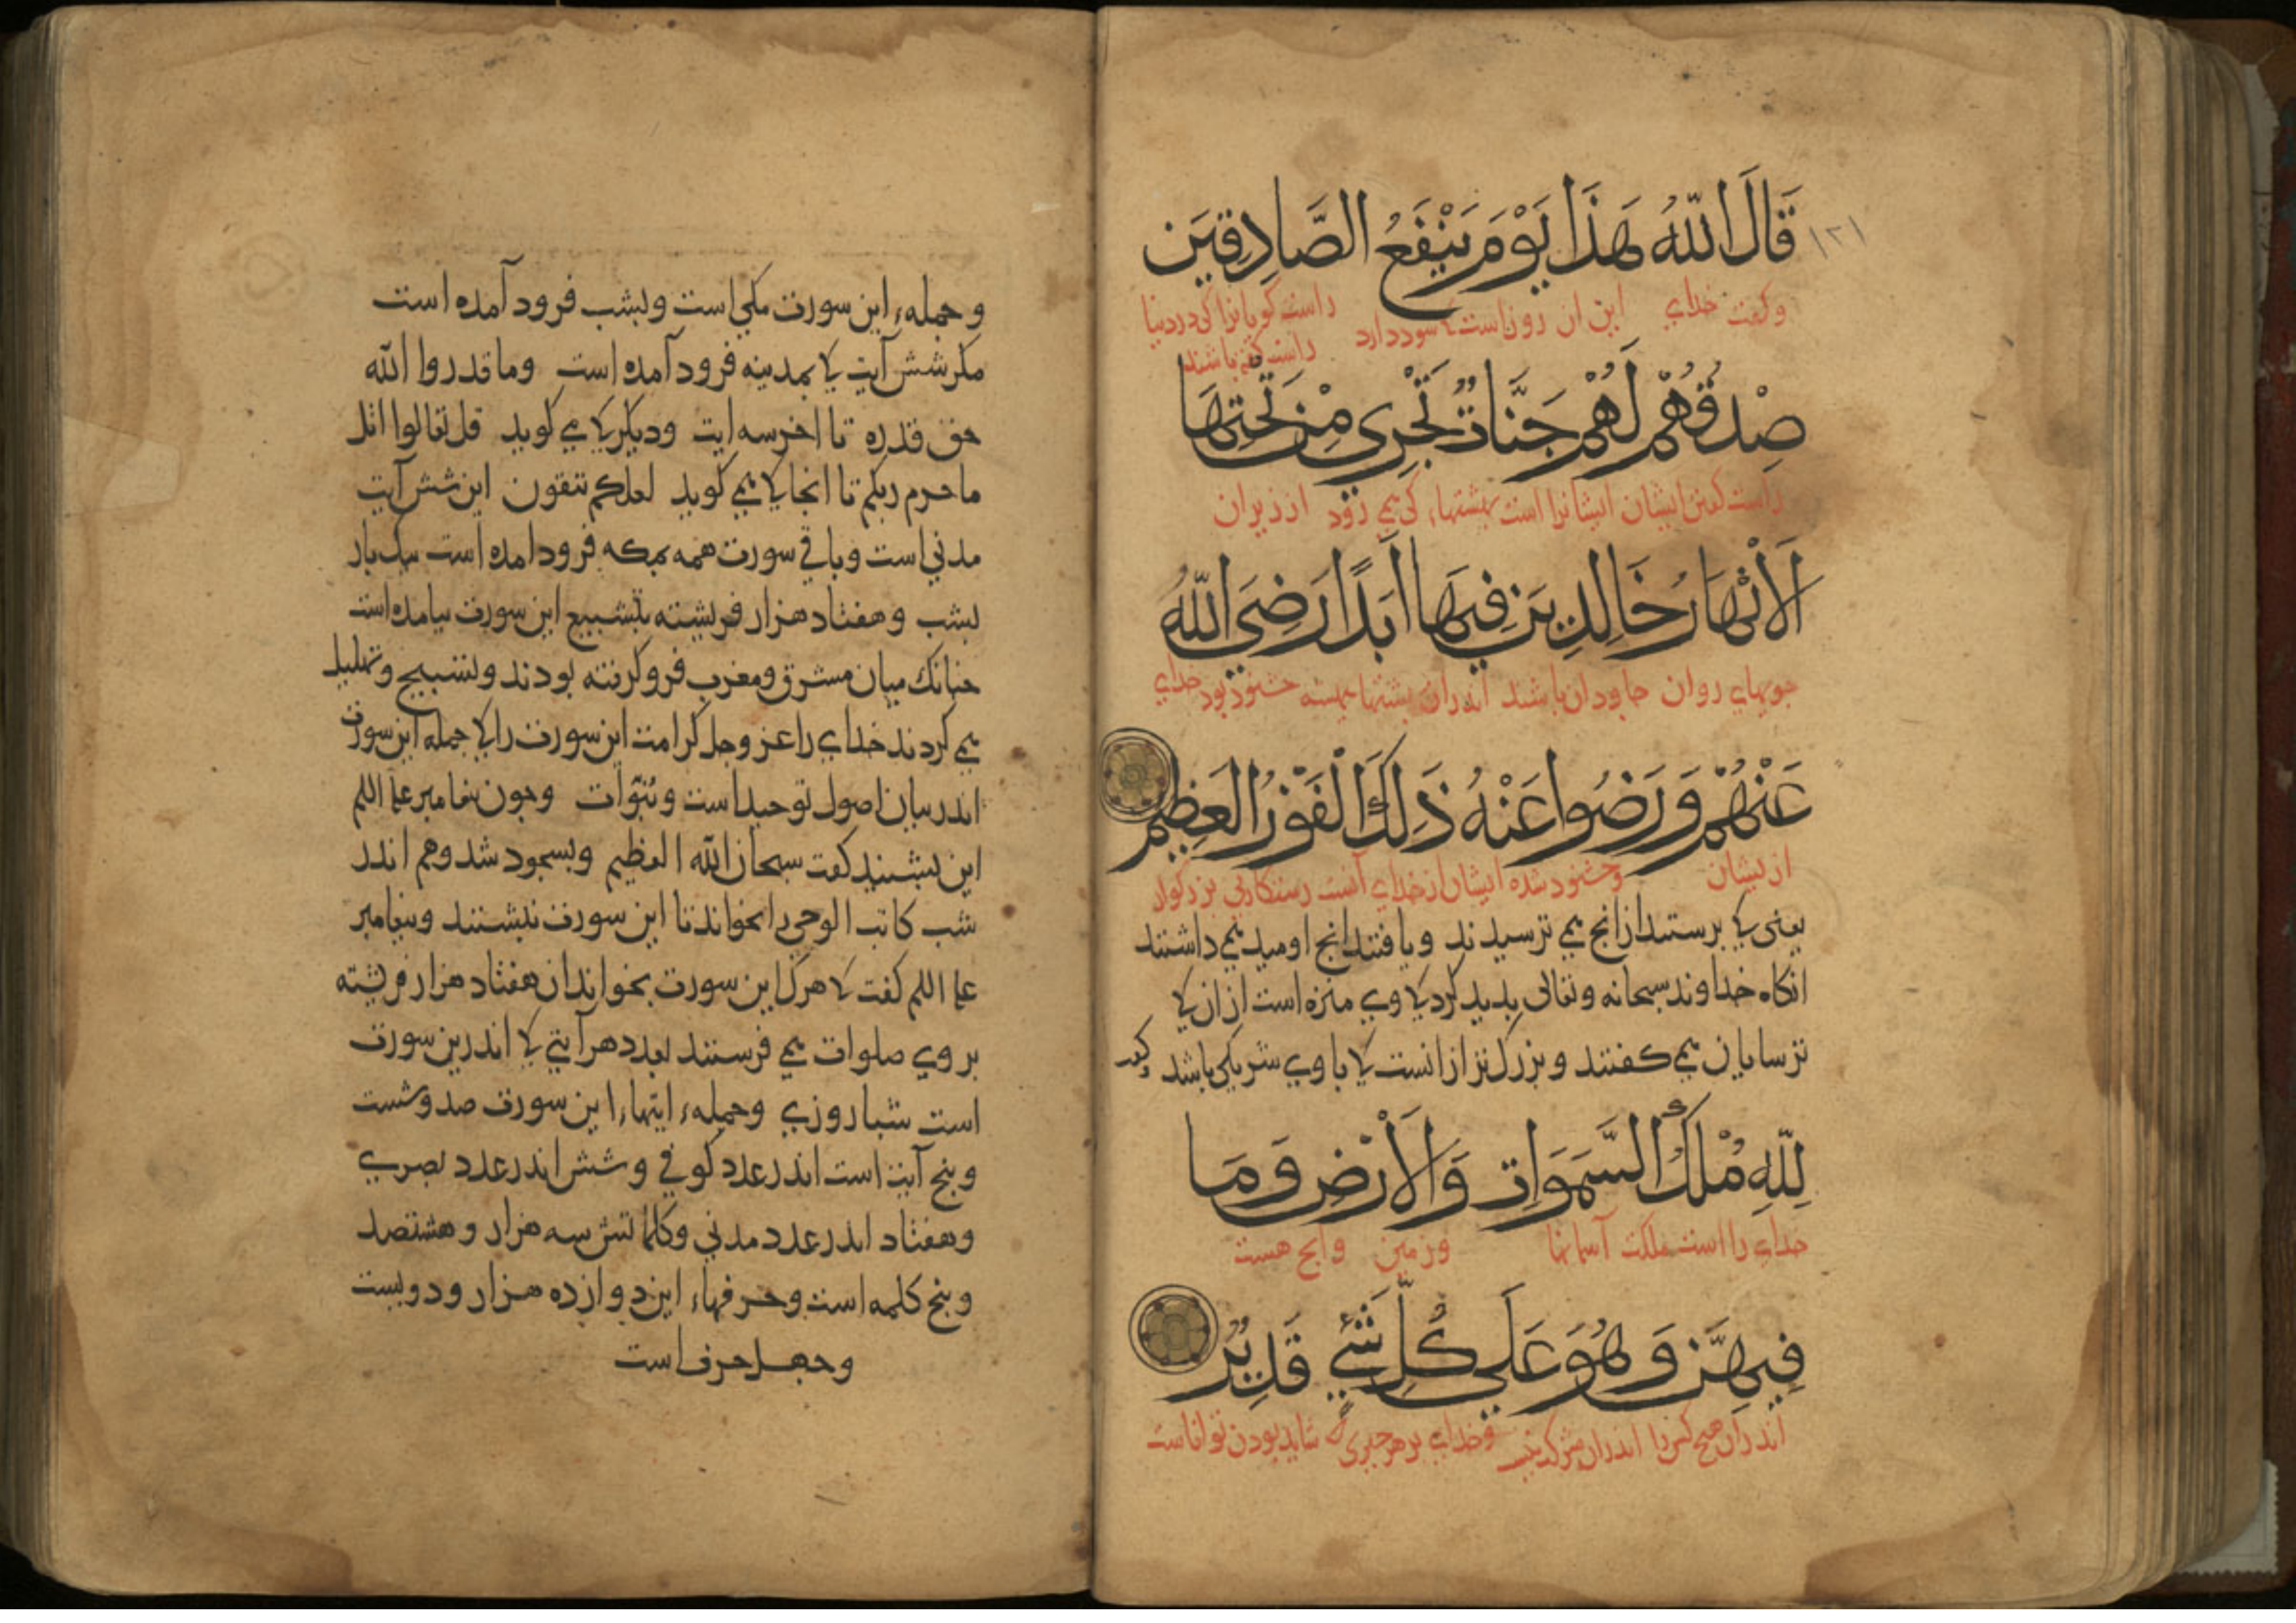 ١٢١
قَالَ اللّٰهُ هَذَا يَوْمَ يَنْفَعُ الصَّادِقِيَن
وكفت خداي اين ان روز است كه سود دارد راست كويانرا كى در دنيا
راست كفته باشند
صِدْقُهُمْ لَهُمْ جَنَّاتٌ تَجْرِى مِنْ تَحْتِهَا
راست كفتن ايشان ايشانرا است بهشتهاء كى مى رود از زير ان
الْاَنْهَارُ خَالِدِيَن فِيهَا اَبَدًا رَضِىَ اللّٰهُ
جويهاي روان جاودان باشند اندران بهشتها هميشه خشنود بود خداي
عَنْهُمْ وَرَضُوا عَنْهُ ذَلِكَ الْفَوْزُ الْعَظِيم
ازيشان وخشنود شده ايشان از خداي آنست رستكاريى بزركوار
يعنى كه برستند از انج مى ترسيدند ويافتند انج اوميد مى داشتند
انكاه خداوند سبحانه وتعالى بديد كرد كه وي منزه است از ان كه
ترسايان مى كفتند وبزركتر از انست كه با وي شريكى باشد
لِلّٰهِ مُلْكُ السَّمَوَاتِ وَالْاَرْضِ وَمَا
خداي را است ملكت آسمانها وزمين وانج هست
فِيهِنَّ وَهُوَ عَلَى كُلِّ شَىْءٍ قَدِيرٌ
اندران وخداي بر هر جيزى كه شايد بودن تواناست
وجمله اين سورت مكى است وبشب فرود آمده است
مكر شش آيت كه بمدينه فرود آمده است وما قدروا الله
حق قدره تا اخر سه ايت وديكر كه مى كويد قل تعالوا اتل
ما حرم ربكم تا انجا كه مى كويد لعلكم تتقون اين شش آيت
مدني است وباقي سورت همه بمكه فرود امده است بيك بار
بشب وهفتاد هزار فريشته بتشييع اين سورت بيامده است
جنانك ميان مشرق ومغرب فرو كرفته بودند وتسبيح وتهليل
مى كردند خداي را عز وجل كرامت اين سورت را كه جمله اين سورت
اندر بيان اصول توحيد است ونبوّات وجون بيغامبر علم اللم
اين بشنيد كفت سبحان الله العظيم وبسجود شد وهم اندر
شب كاتب الوحى را بخواند تا اين سورت نبشتند وبيغامبر
علم اللم كفت كه هرك اين سورت بخواند ان هفتاد هزار فريشته
بر وي صلوات مى فرستند بعدد هر آيتى كه اندرين سورت
است شباروزي وجمله ايتهاء اين سورت صد وشست
وبنج آيت است اندر عدد كوفي وشش اندر عدد بصري
وهفتاد اندر عدد مدني وكلماتش سه هزار وهشتصد
وبنج كلمه است وحرفهاء اين دوازده هزار ودويست
وجهل حرف است